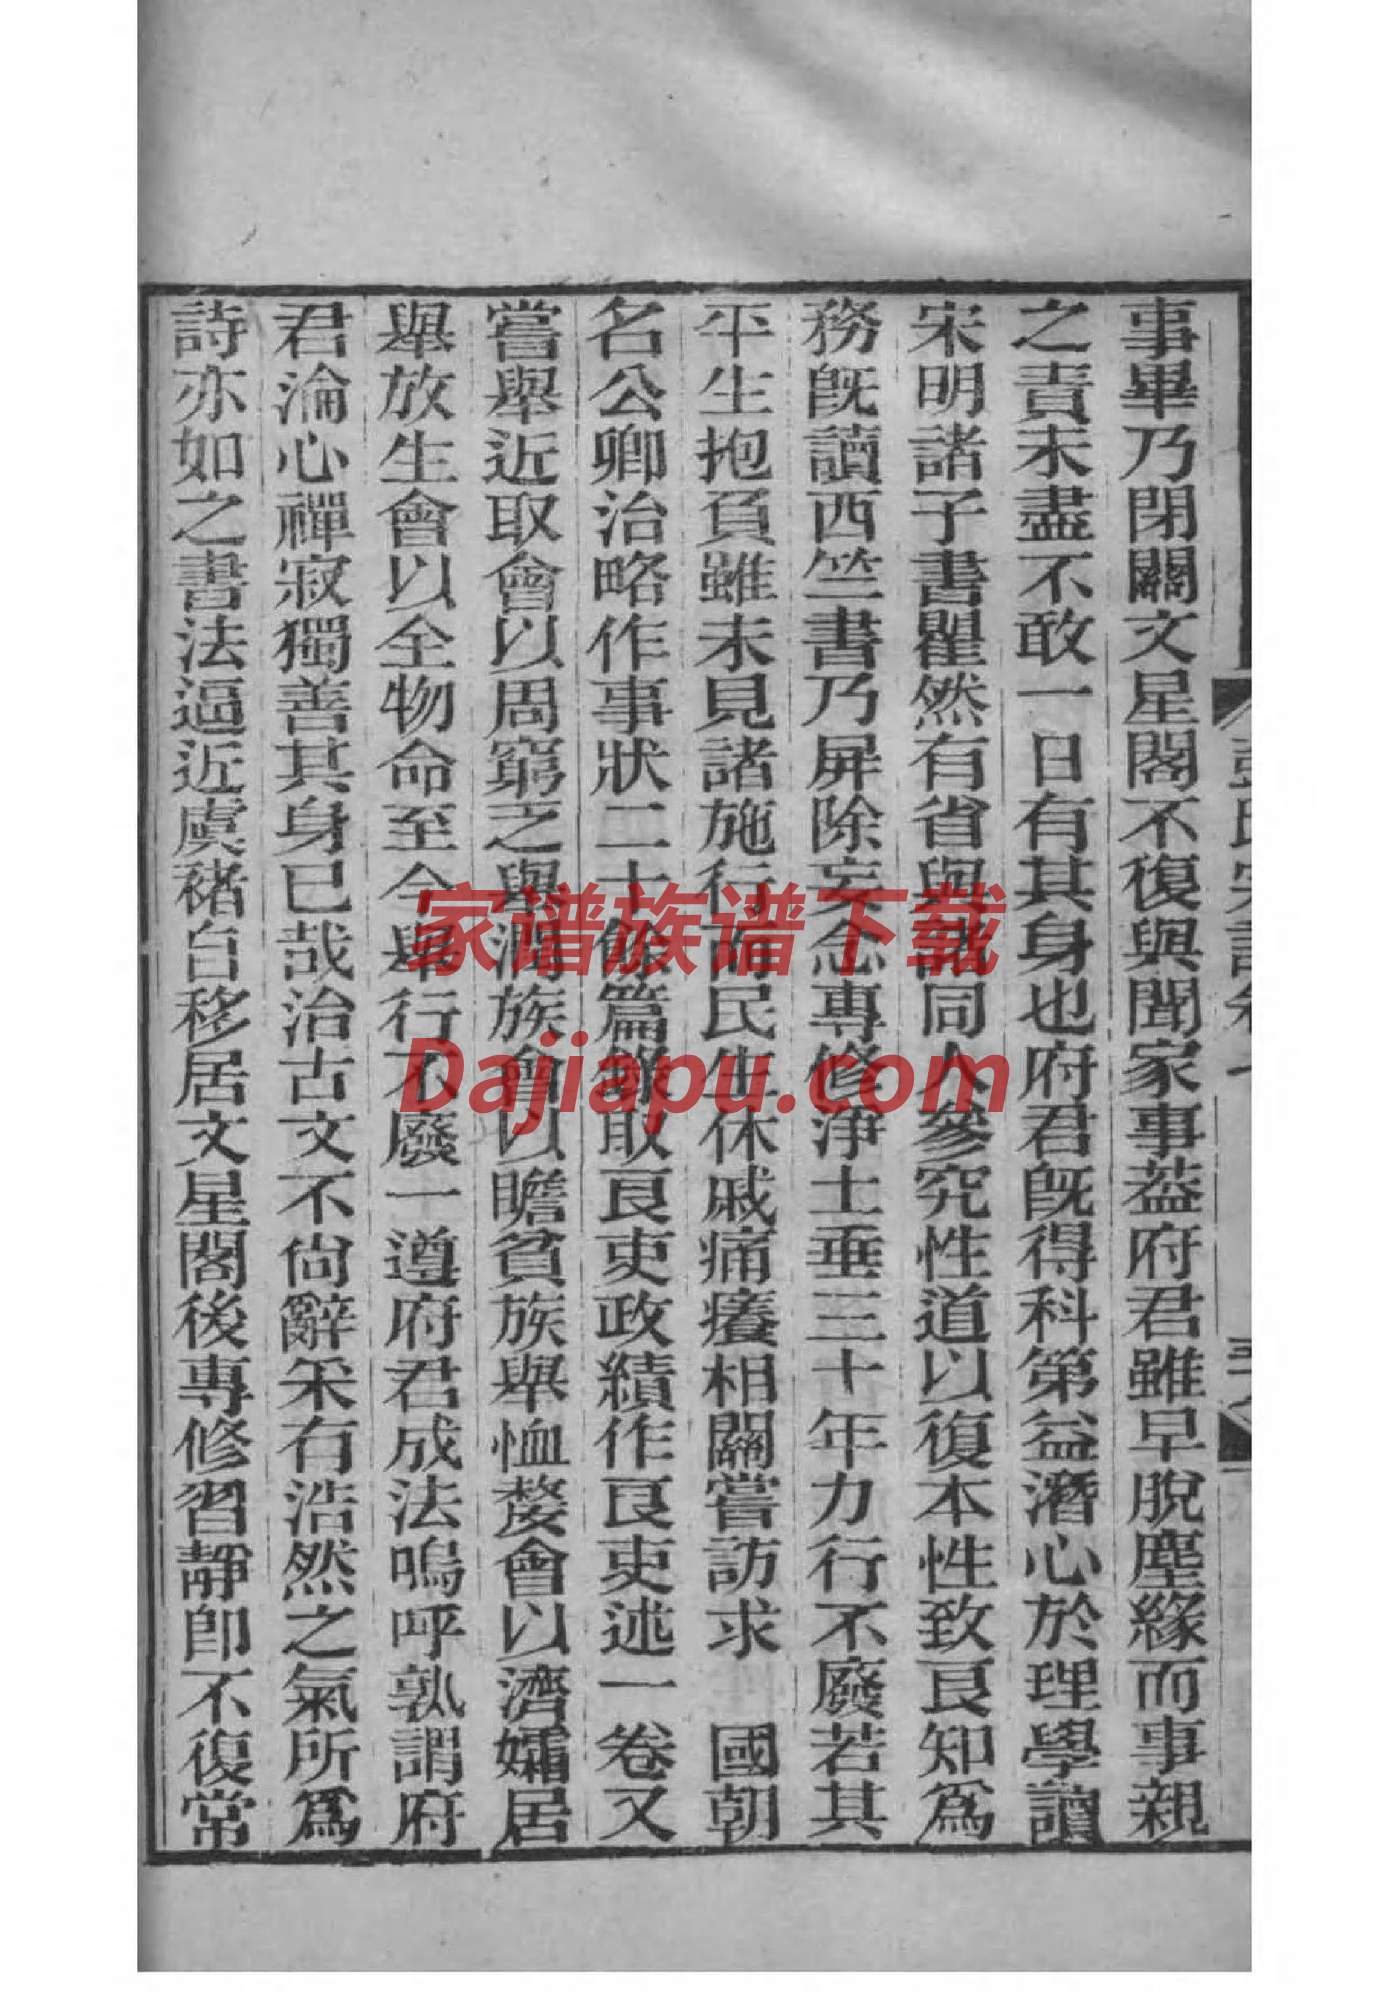 彭氏宗譜卷
事畢乃閉關文星閣不復與聞家事葢府君雖早脫塵緣而事親
之責未盡不敢一日有其身也府君旣得科第益潛心於理學讀
宋明諸子書瞿然有省與同人參究性道以復本性致良知爲
務旣讀西竺書乃屏除妄念專修淨土垂三十年力行不廢若其
平生抱負雖未見諸施行而民生休戚痛癢相關嘗訪求　國朝
名公卿治略作事狀二十餘篇錄取良吏政績作良吏述一卷又
嘗舉近取會以周窮乏舉潤族會以贍貧族舉恤嫠會以濟孀居
舉放生會以全物命至今舉行不廢一遵府君成法嗚呼孰謂府
君淪心禪寂獨善其身已哉治古文不尙辭采有浩然之氣所爲
詩亦如之書法逼近虞褚自移居文星閣後專修習靜卽不復常
家谱族谱下载
Dajiapu.com